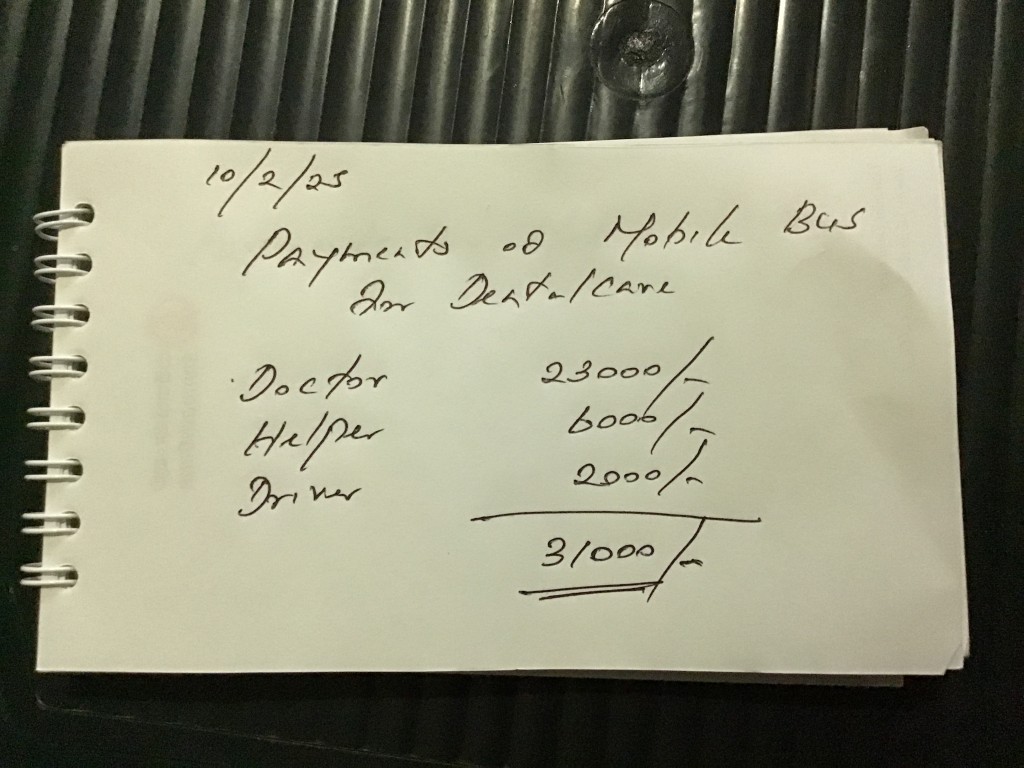 10/2/25
Payments of Mobile Bus
for Dental care
Doctor 23000/-
Helper 6000/-
Driver 2000/-
31000/-